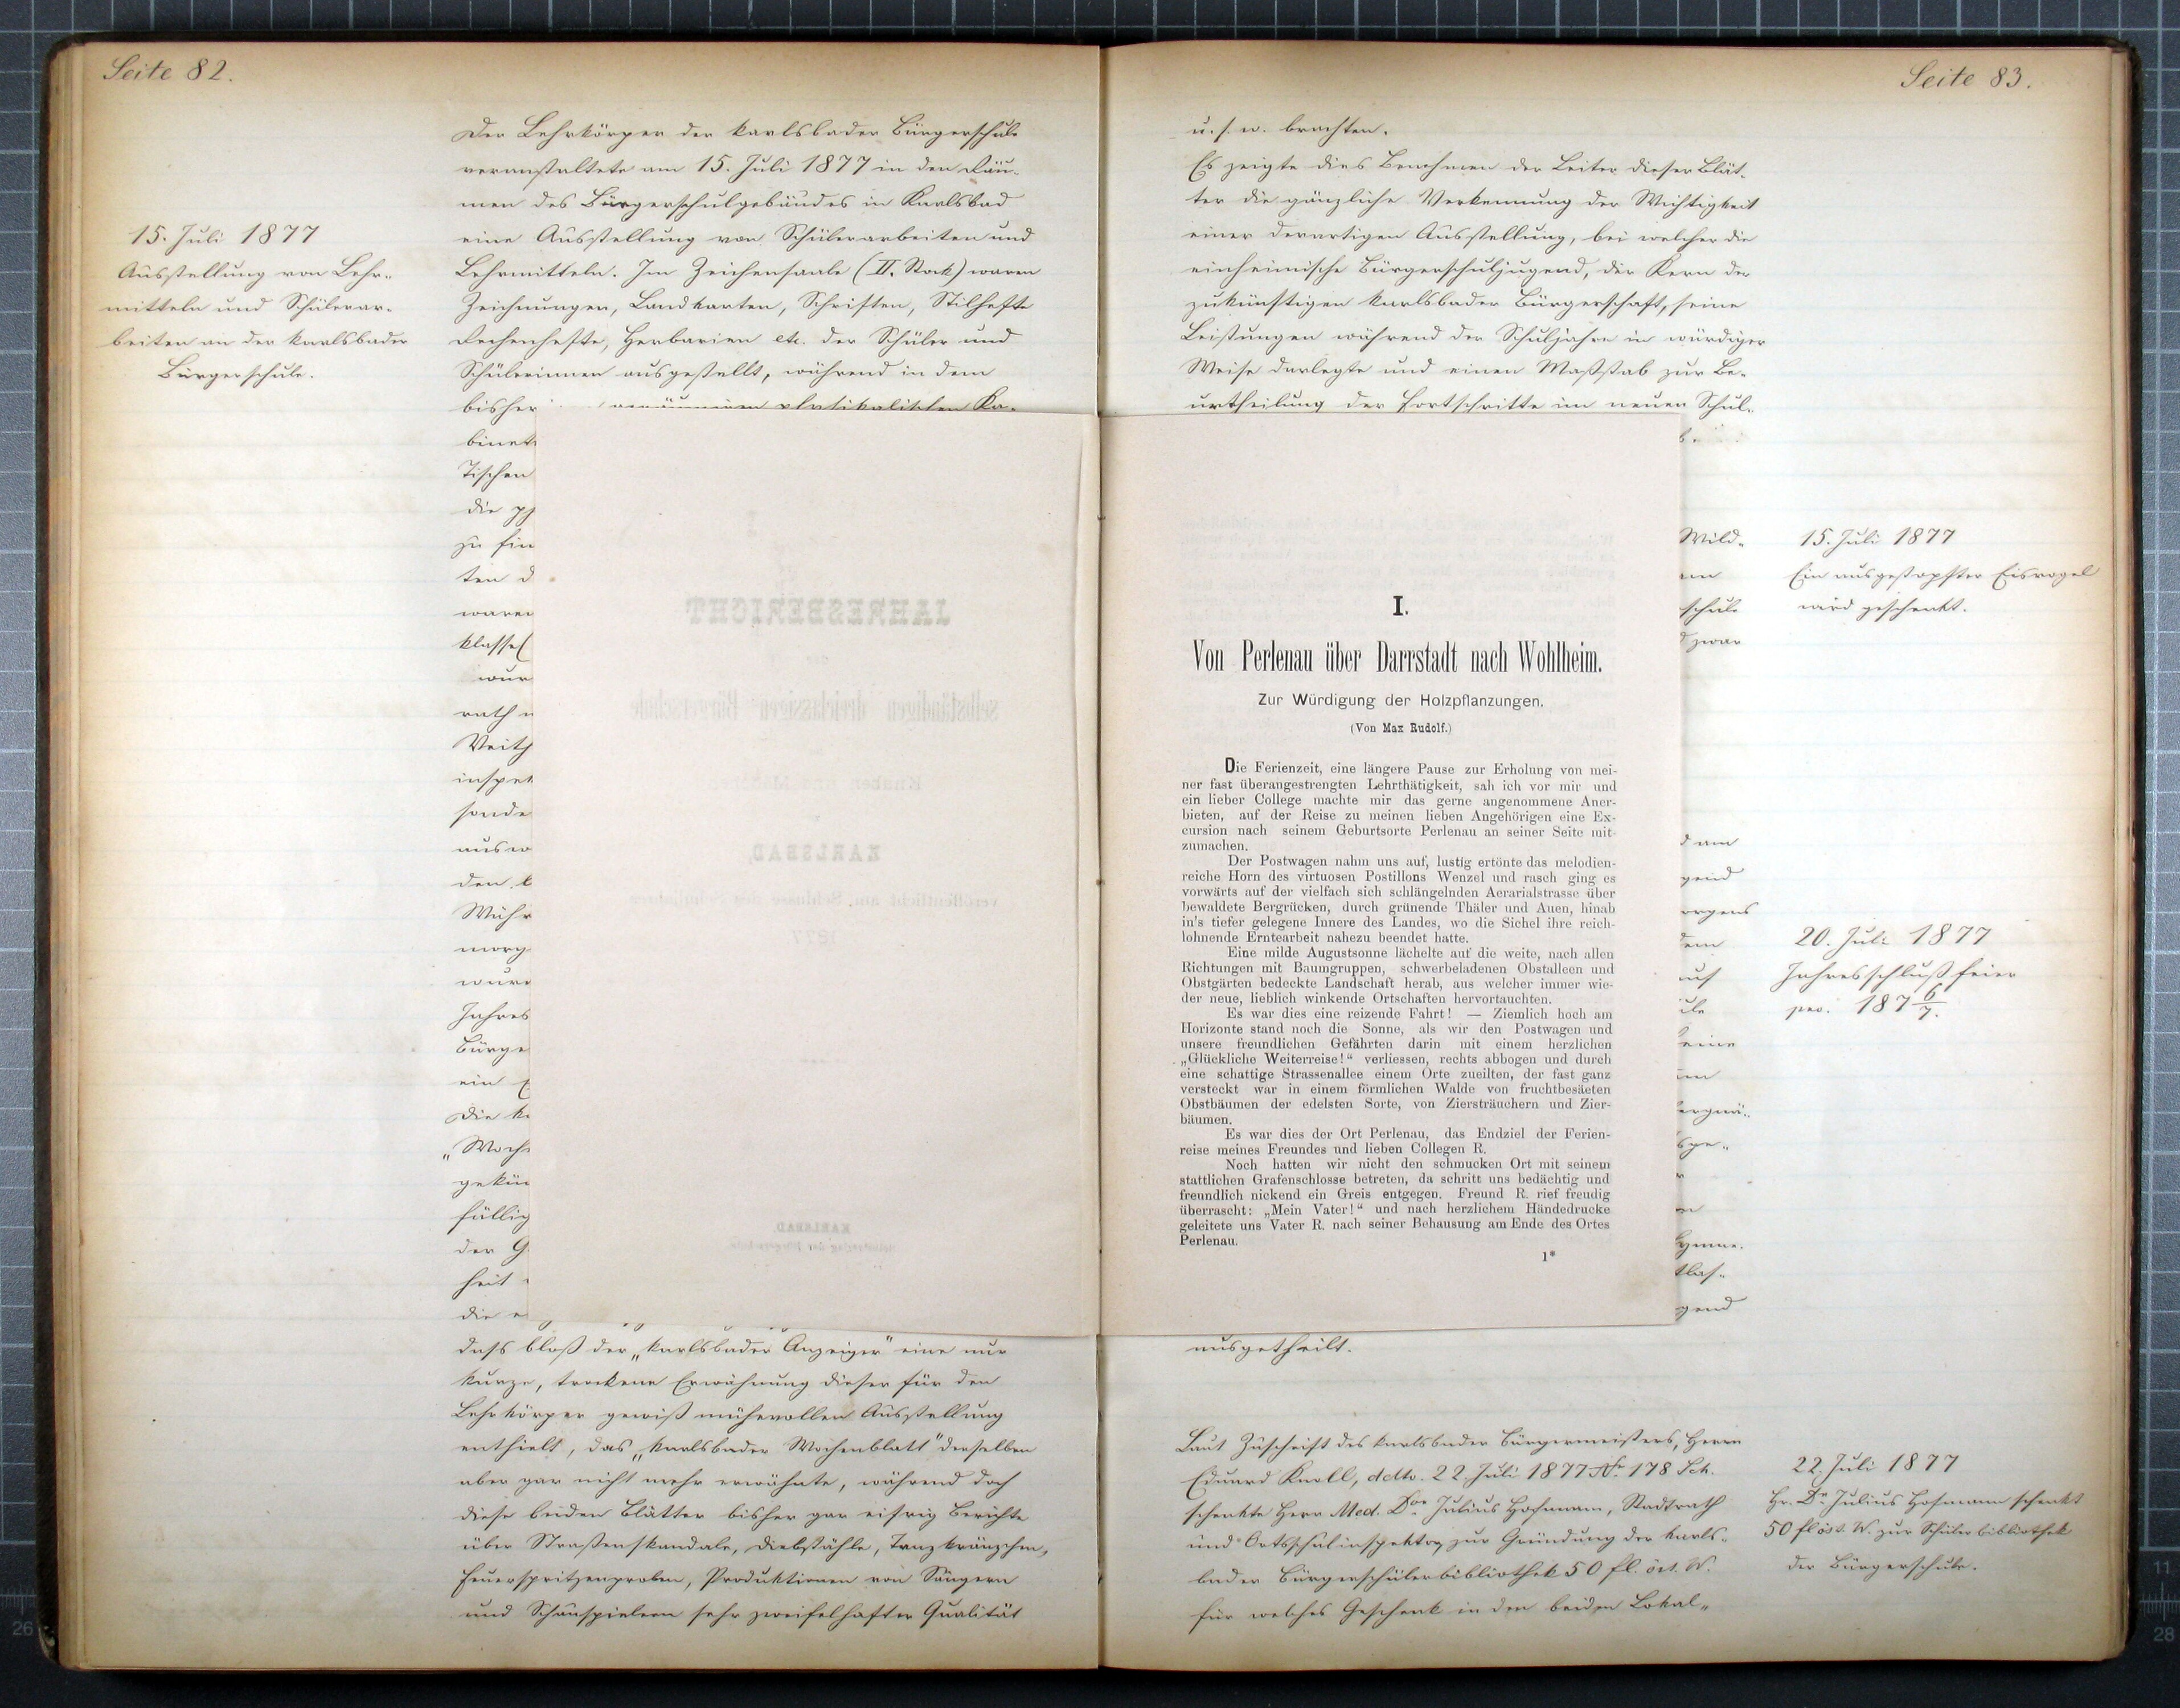 Seite 82.
15. Juli 1877
Ausstellung von Lehr-
mitteln und Schülerar-
beiten an der Karlsbader
Bürgerschule.
Der Lehrkörper der Karlsbader Bürgerschule
veranstaltete am 15. Juli 1877 in den Räu-
men des Bürgerschulgebäudes in Karlsbad
eine Ausstellung von Schülerarbeiten und
Lehrmitteln. Im Zeichensaale (II. Stock) waren
Zeichnungen, Landkarten, Schriften, Stilhefte
Rechenhefte, Herbarien etc. der Schüler und
Schülerinnen ausgestellt, während in dem
bisher
binet
Tischen
die
zu
ten
waren
klasse
wur
rath
Veith
inspek
sonde
den
Währ
morg
wurd
Jahres
Bürge
ein
die
„Woch
gekün
fällig
der G
heit
die
dass bloß der „Karlsbader Anzeiger" eine nur
kurze, trockene Erwähnung dieser für den
Lehrkörper gewiß mühevollen Ausstellung
enthielt, das „Karlsbader Wochenblatt" derselben
aber gar nicht mehr erwähnte, während doch
diese beiden Blätter bisher gar eifrig Berichte
über Straßenskandale, Diebstähle, Tanzkränzchen,
Feuerspritzenproben, Produktionen von Sängern
und Schauspielern sehr zweifelhafter Qualität
Seite 83.
u. s. w. brachten.
Es zeigte dies Benehmen der Leiter dieser Blät-
ter die gänzliche Verkennung der Wichtigkeit
einer derartigen Ausstellung, bei welcher die
einheimische Bürgerschuljugend, der Kern der
zukünftigen Karlsbader Bürgerschaft, seine
Leistungen während der Schuljahre in würdiger
Weise darlegte und einen Maßstab zur Be-
urtheilung der Fortschritte im neuen Schul-
I.
Von Perlenau über Darrstadt nach Wohlheim.
Zur Würdigung der Holzpflanzungen.
(Von Max Rudolf.)
Die Ferienzeit, eine längere Pause zur Erholung von mei-
ner fast überangestrengten Lehrthätigkeit, sah ich vor mir und
ein lieber College machte mir das gerne angenommene Aner-
bieten, auf der Reise zu meinen lieben Angehörigen eine Ex-
cursion nach seinem Geburtsorte Perlenau an seiner Seite mit-
zumachen.
Der Postwagen nahm uns auf, lustig ertönte das melodien-
reiche Horn des virtuosen Postillons Wenzel und rasch ging es
vorwärts auf der vielfach sich schlängelnden Aerarialstrasse über
bewaldete Bergrücken, durch grünende Thäler und Auen, hinab
in's tiefer gelegene Innere des Landes, wo die Sichel ihre reich-
lohnende Erntearbeit nahezu beendet hatte.
Eine milde Augustsonne lächelte auf die weite, nach allen
Richtungen mit Baumgruppen, schwerbeladenen Obstalleen und
Obstgärten bedeckte Landschaft herab, aus welcher immer wie-
der neue, lieblich winkende Ortschaften hervortauchten.
Es war dies eine reizende Fahrt! — Ziemlich hoch am
Horizonte stand noch die Sonne, als wir den Postwagen und
unsere freundlichen Gefährten darin mit einem herzlichen
„Glückliche Weiterreise!“ verliessen, rechts abbogen und durch
eine schattige Strassenallee einem Orte zueilten, der fast ganz
versteckt war in einem förmlichen Walde von fruchtbesäeten
Obstbäumen der edelsten Sorte, von Ziersträuchern und Zier-
bäumen.
Es war dies der Ort Perlenau, das Endziel der Ferien-
reise meines Freundes und lieben Collegen R.
Noch hatten wir nicht den schmucken Ort mit seinem
stattlichen Grafenschlosse betreten, da schritt uns bedächtig und
freundlich nickend ein Greis entgegen. Freund R. rief freudig
überrascht: „Mein Vater!“ und nach herzlichem Händedrucke
geleitete uns Vater R. nach seiner Behausung am Ende des Ortes
Perlenau.
1*
Wild-
schule
zwar
15. Juli 1877
Ein ausgestopfter Eisvogel
wird geschenkt.
20. Juli 1877
Jahresschlußfeier
pro. 187 6/7.
ausgetheilt.
Laut Zuschrift des Karlsbader Bürgermeisters, Herrn
Eduard Knoll, ddto. 22. Juli 1877 № 178 Sch.
schenkte Herr Med. Dor. Julius Hofmann, Stadtrath
und Ortsschulinspektor zur Gründung der Karls-
bader Bürgerschülerbibliothek 50 fl. öst. W.
für welches Geschenk in den beiden Lokal-
22. Juli 1877
Hr. Dr. Julius Hofmann schenkt
50 fl öst. W. zur Schülerbibliothek
der Bürgerschule.